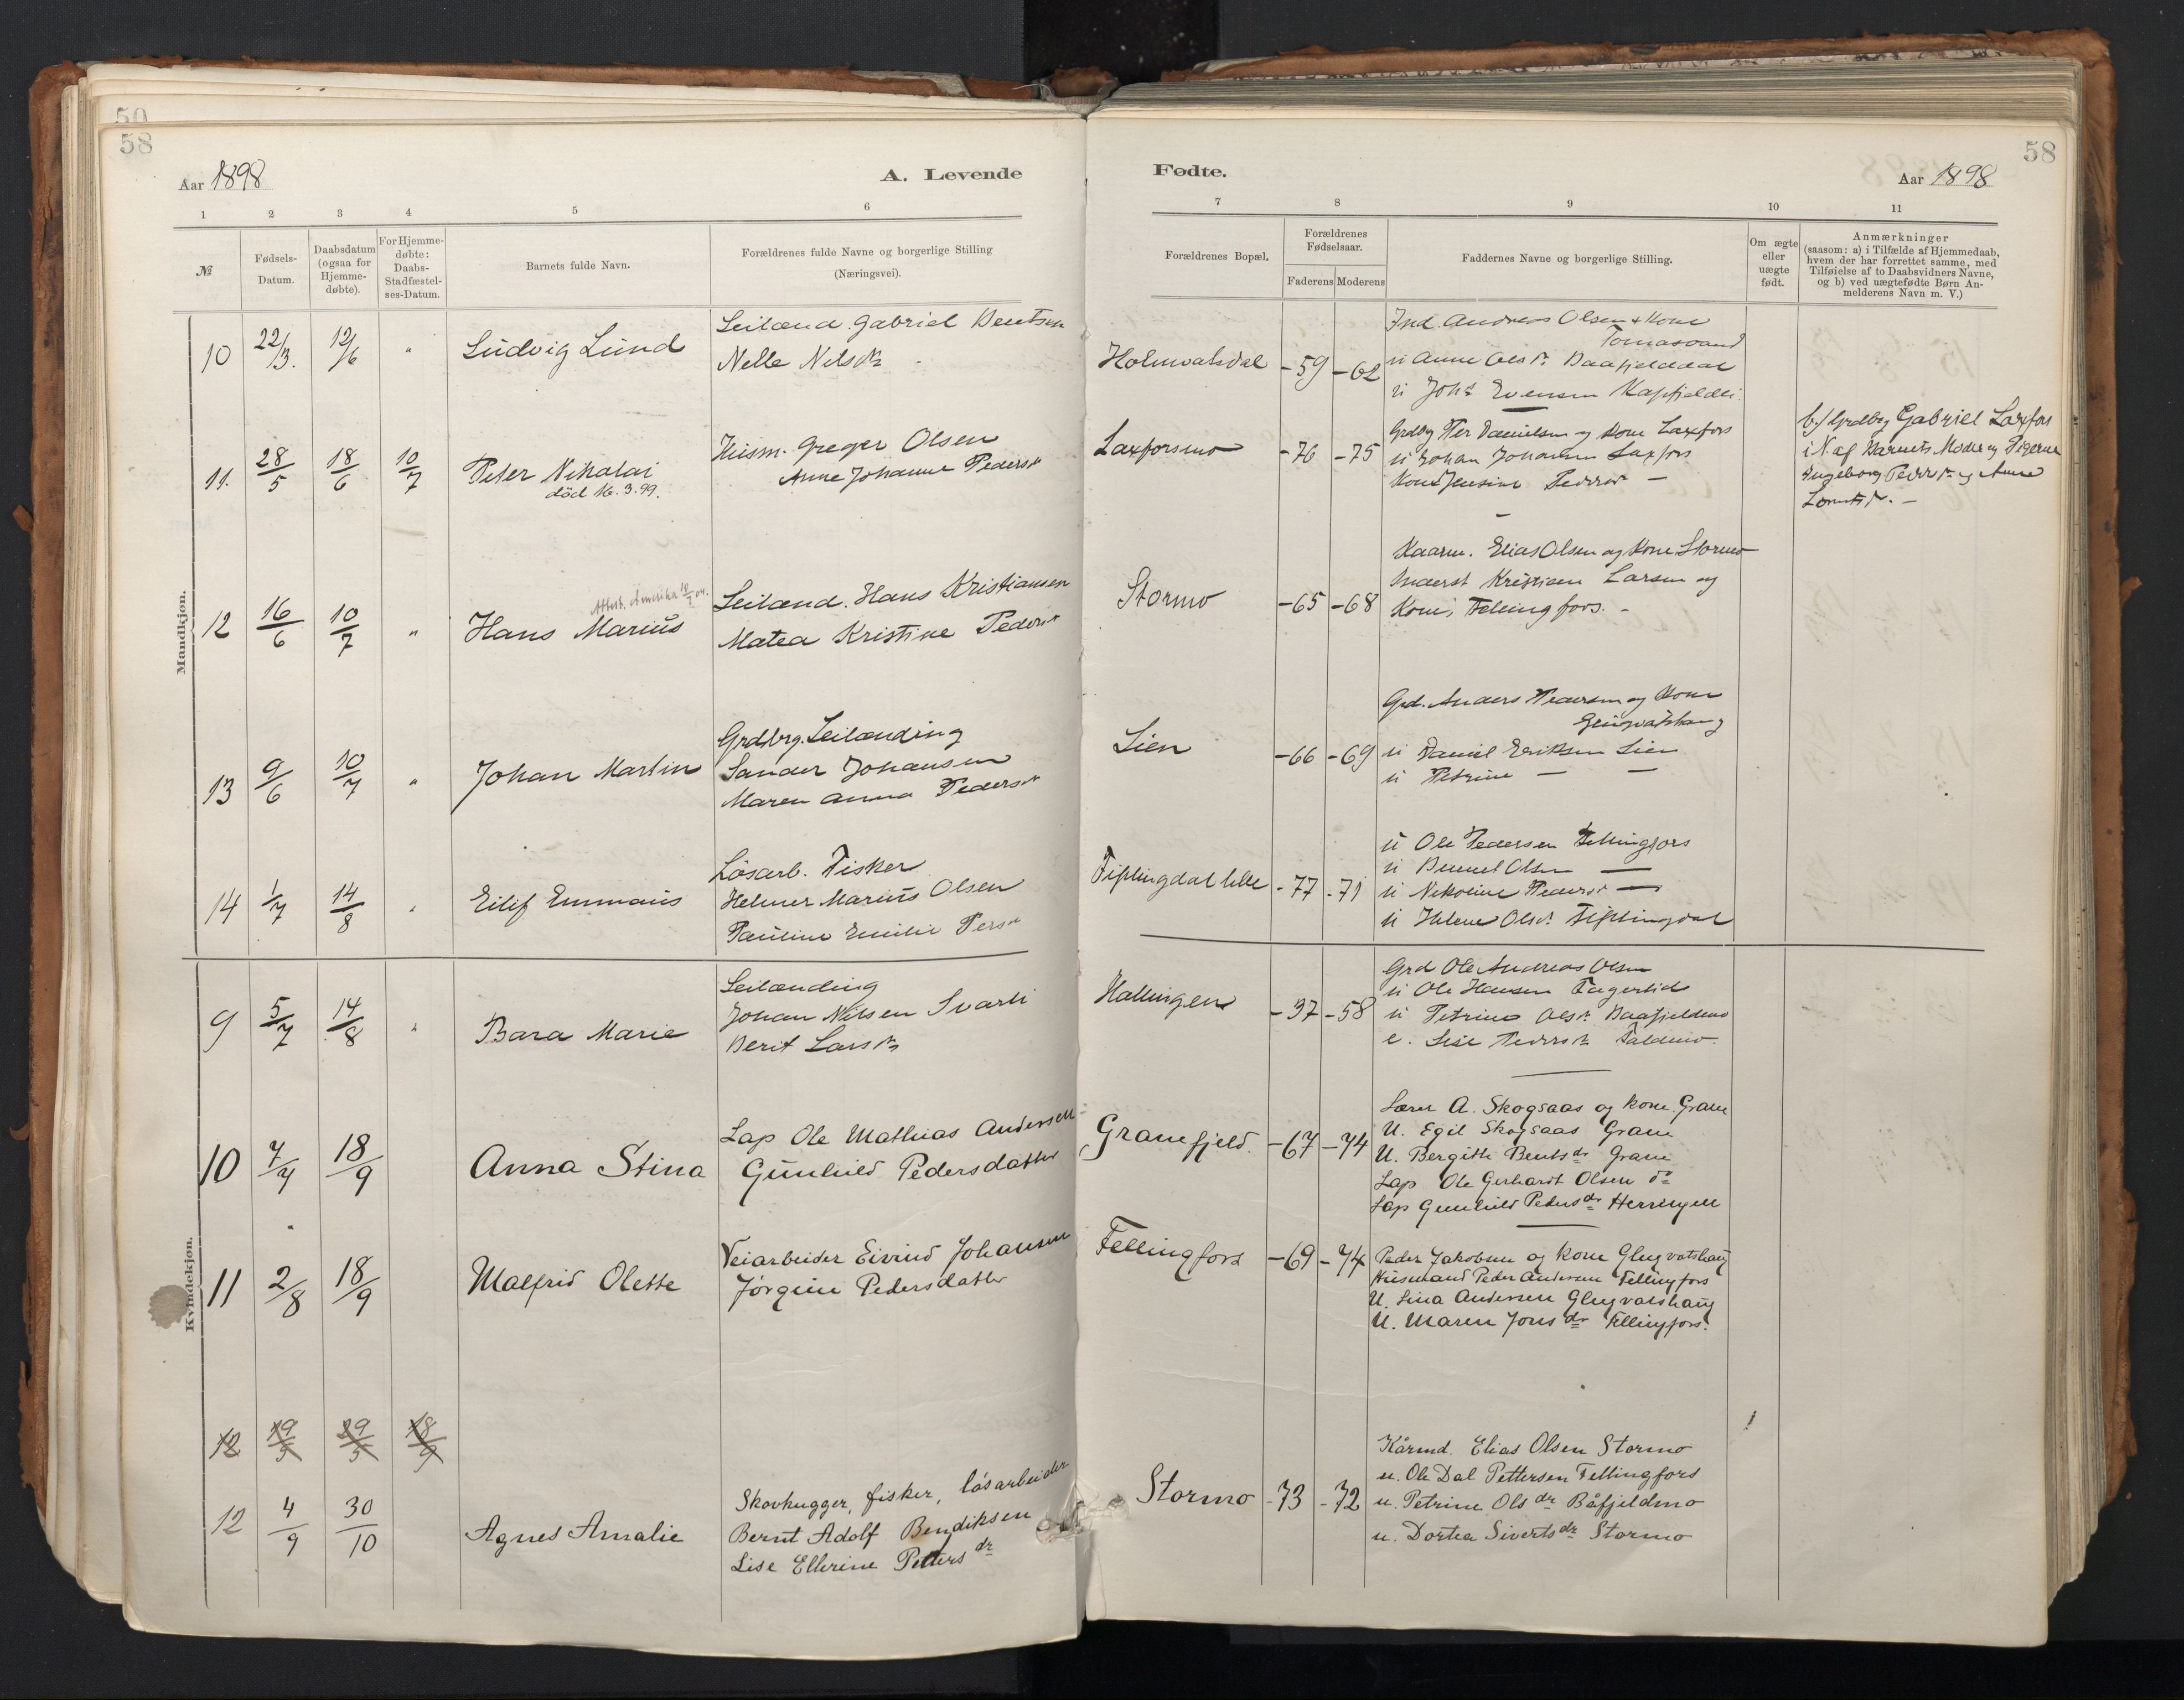 50
58
58
Aar 1898
A. Levende
Fødte.
Aar 1898
1 2 3 4 5 6 7 8 9 10 11
№
Fødsels-
Datum.
Daabsdatum
(ogsaa for
Hjemme-
døbte).
For Hjemme-
døbte:
Daabs-
Stadfæstel-
ses-Datum.
Barnets fulde Navn.
Forældrenes fulde Navne og borgerlige Stilling
(Næringsvei).
Forældrenes Bopæl.
Forældrenes
Fødselsaar.
Faderens Moderens
Faddernes Navne og borgerlige Stilling.
Om ægte
eller
uægte
født.
Anmærkninger
(saasom: a) i Tilfælde af Hjemmedaab,
hvem der har forrettet samme, med
Tilføielse af to Daabsvidners Navne,
og b) ved uægtefødte Børn An-
melderens Navn m. V.)
Mandkjøn.
10 22/3. 12/6 "
Ludvig Lund
Leilænd. Gabriel Bentsen
Nelle Nilsdtr
Holmvatsdal -59 -62
Ind. Andreas Olsen & Kone
Tomasvand
u Anne Olsdtr. Baafjelddal
u Johs Evensen Kapfjeldli.
11. 28/5 18/6 10/7
Peter Nikolai
död 16.3.99.
Husm. Greger Olsen
Anne Johanne Pedersdtr
Laxforsmo -76 -75
Grdbrg Per Danielsen og Kone Laxfors
u Johan Johansen Laxfors
Kone Jensine Pedersdtr —
b/ Grdbrg Gabriel Laxfors
i N. af Barnets Moder og Pigerne
Ingeborg Pedersdtr og Anne
Lorntsdtr. —
12 16/6 10/7 "
Attest. Amerika
Hans Marius
Leilænd. Hans Kristiansen
Matea Kristine Pedersdtr
Stormo -65 -68
Kaarm. Elias Olsen og Kone Stormo
Inderst Kristian Larsen og
Kone, Fellingfors. -
13 9/6 10/7 "
Johan Martin
Grdbrg. Leilænding
Sander Johansen
Maren Anna Pedersdtr
Lien -66 -69
Grd. Anders Pedersen og Kone
Glugvatshaug
u Daniel Eriksen Lien
u Petrine — —
14 1/7 14/8 "
Eilif Emmaus
Lösarb. Fisker
Helmer Marius Olsen
Pauline Emilie Persdtr
Fiplingdal lille -77 -71
u Ole Pedersen Fellingfors
u Olsen —
u Nikoline Pedersdtr —
u Helene Olsdtr. Fiplingdal
Kvindekjøn.
9 5/7 14/8 "
Bara Marie
Leilænding
Johan Nilsen Svarti
Berit Larsdtr
Hattingen -37 -58
Grd Ole Andreas Olsen
u Ole Hansen Fagerlid
u Petrine Olsdtr. Baafjeldmo
e. Lise Pedersdtr Faldmo.
10 7/7 18/9
Anna Stina
Lap Ole Mathias Andersen
Gunhild Pedersdatter
Granefjeld. -67 -74
Lærer A. Skogsaas og kone. Grane
U. Egil Skogsaas Grane
U. Bergitte Bentsdr Grane
Lap Ole Gerhardt Olsen do
Lap Gunhild Pedersdr Herringen
11 2/8 18/9
Malfrid Olette
Veiarbeider Eivind Johansen
Jørgine Pedersdatter
Fellingfors -69 -74
Peder Jakobsen og kone Glugvatshaug
Husmand Peder Andersen Fellingfors
U. Lina Andersen Glugvatshaug
U. Maren Jonsdr Fellingfors.
12 19/5 29/5 18/9
12 4/9 30/10
Agnes Amalie
Skovhugger, fisker, lösarbeider
Bernt Adolf Bendiksen
Lise Ellerine Pettersdr
Stormo -73 -72
Kårmd. Elias Olsen Stormo
u. Ole Dal Pettersen Fellingfors
u. Petrine Olsdr Båfjeldmo
u. Dortea Sivertsdr Stormo